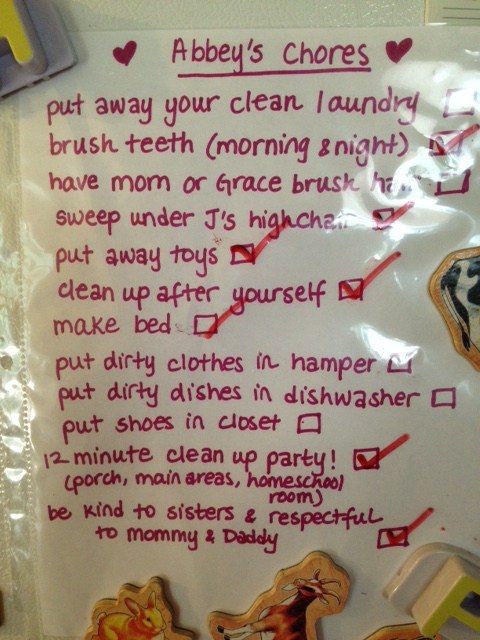 Abbey's Chores
put away your clean laundry
brush teeth (morning & night)
have mom or Grace brush hair
sweep under J's highchair
put away toys
clean up after yourself
make bed
put dirty clothes in hamper
put dirty dishes in dishwasher
put shoes in closet
12 minute clean up party!
(porch, main areas, homeschool
room)
be kind to sisters & respectful
to mommy & Daddy